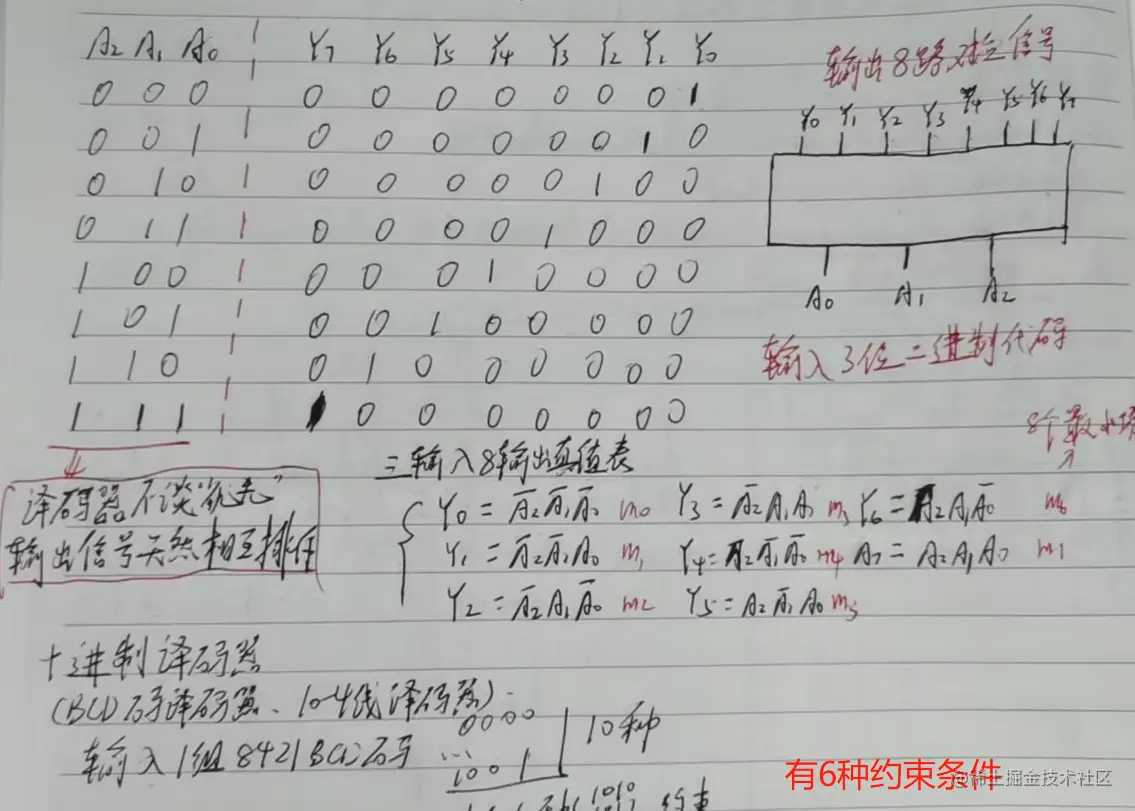 A2 A1 A0 Y7 Y6 Y5 Y4 Y3 Y2 Y1 Y0
0 0 0 0 0 0 0 0 0 0 1
0 0 1 0 0 0 0 0 0 1 0
0 1 0 0 0 0 0 0 1 0 0
0 1 1 0 0 0 0 1 0 0 0
1 0 0 0 0 0 1 0 0 0 0
1 0 1 0 0 1 0 0 0 0 0
1 1 0 0 1 0 0 0 0 0 0
1 1 1 1 0 0 0 0 0 0 0
输出8路对应信号
Y0 Y1 Y2 Y3 Y4 Y5 Y6 Y7
A0 A1 A2
输入3位二进制代码
8个最小项
三输入8输出真值表
译码器不谈“优先”
输出信号天然相互排斥
Y0 = A̅2A̅1A̅0 m0 Y3 = A̅2A1A0 m3 Y6 = A2A1A̅0 m6
Y1 = A̅2A̅1A0 m1 Y4 = A2A̅1A̅0 m4 A7 = A2A1A0 m7
Y2 = A̅2A1A̅0 m2 Y5 = A2A̅1A0 m5
十进制译码器
(BCD码译码器、10-4线译码器)
0000
输入1组8421BCD码 ... 10种
1001
有6种约束条件
1010
约束
@稀土掘金技术社区